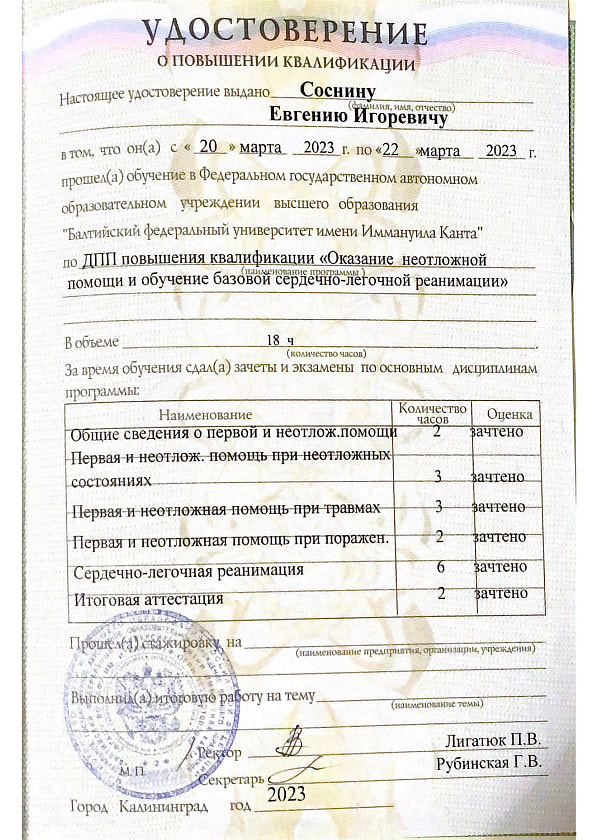 УДОСТОВЕРЕНИЕ
О ПОВЫШЕНИИ КВАЛИФИКАЦИИ
Настоящее удостоверение выдано Соснину
(фамилия, имя, отчество)
Евгению Игоревичу
в том, что он(а) с « 20 » марта 2023 г. по «22 »марта 2023 г.
прошел(а) обучение в Федеральном государственном автономном
образовательном учреждении высшего образования
"Балтийский федеральный университет имени Иммануила Канта"
по ДПП повышения квалификации «Оказание неотложной
(наименование программы)
помощи и обучение базовой сердечно-легочной реанимации»
В объеме 18 ч.
(количество часов)
За время обучения сдал(а) зачеты и экзамены по основным дисциплинам
программы:
Наименование Количество часов Оценка
Общие сведения о первой и неотлож.помощи 2 зачтено
Первая и неотлож. помощь при неотложных
состояниях 3 зачтено
Первая и неотложная помощь при травмах 3 зачтено
Первая и неотложная помощь при поражен. 2 зачтено
Сердечно-легочная реанимация 6 зачтено
Итоговая аттестация 2 зачтено
Прошел(а) стажировку на
(наименование предприятия, организации, учреждения)
Выполнил(а) итоговую работу на тему
(наименование темы)
Ректор Лигатюк П.В.
М.П.
Секретарь Рубинская Г.В.
Город Калининград год 2023